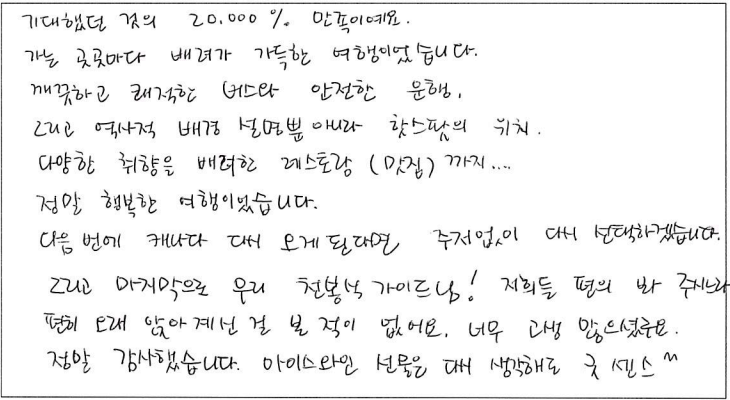 기대했던 것의 20.000 % 만족이예요.
가는 곳곳마다 배려가 가득한 여행이었습니다.
깨끗하고 쾌적한 버스와 안전한 운행,
그리고 역사적 배경 설명뿐 아니라 핫스팟의 위치.
다양한 취향을 배려한 레스토랑 (맛집) 까지....
정말 행복한 여행이었습니다.
다음 번에 캐나다 다시 오게 된다면 주저없이 다시 선택하겠습니다.
그리고 마지막으로 우리 천봉식 가이드님! 저희들 편의 봐 주시느라
편히 오래 앉아 계신 걸 본 적이 없어요. 너무 고생 많으셨구요.
정말 감사했습니다. 아이스와인 선물은 다시 생각해도 굿 센스 ~